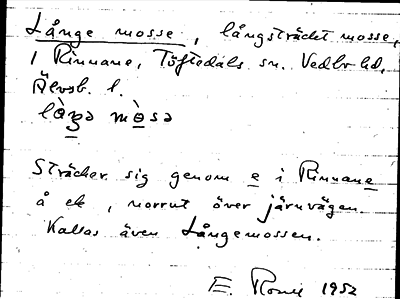 Långe mosse, långsträckt mosse,
i Rinnane, Töftedals sn. Vedbo hd,
Älvsb. l.
lòŋə mòsə
Sträcker sig genom e i Rinnane
å ek, norrut över järnvägen.
Kallas även Långemossen.
E. 1952